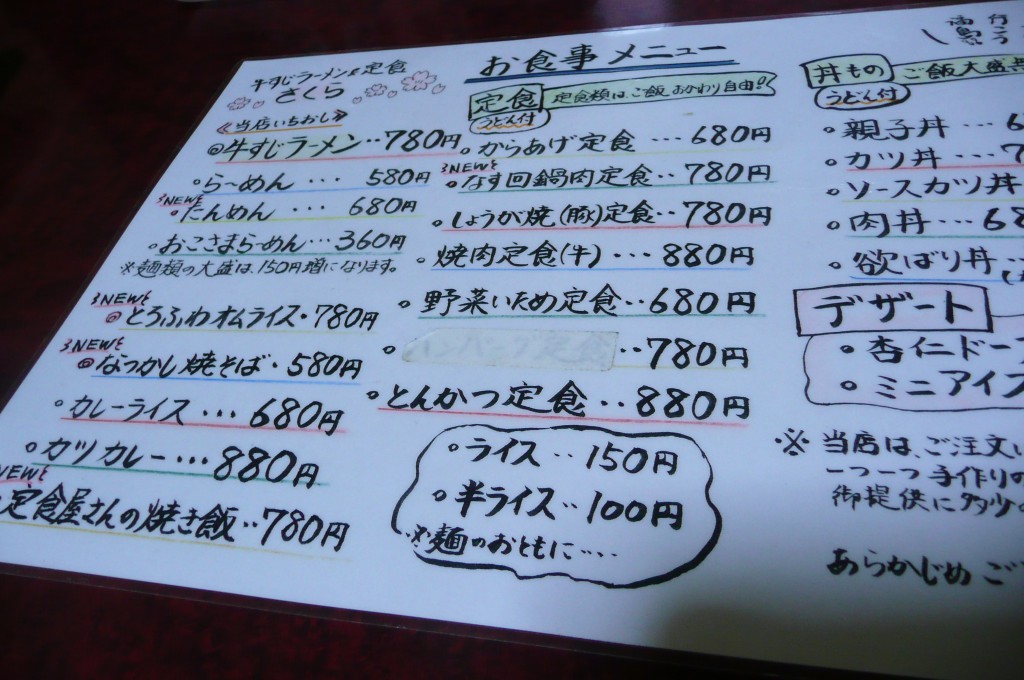 お食事メニュー
牛すじラーメン&定食
さくら
《当店いちおし》
◎牛すじラーメン‥780円
。らーめん … 580円
NEW
。たんめん … 680円
。おこさまらーめん…360円
※麺類の大盛は、150円増になります。
NEW
◎とろふわオムライス・780円
NEW
◎なつかし焼そば・580円
。カレーライス … 680円
。カツカレー…880円
NEW
定食屋さんの焼き飯‥780円
定食 定食類は、ご飯おかわり自由!
うどん付
。からあげ定食 … 680円
NEW
。なす回鍋肉定食‥780円
。しょうが焼(豚)定食‥780円
。焼肉定食(牛)…880円
。野菜いため定食‥680円
。‥780円
。とんかつ定食‥880円
。ライス‥150円
。半ライス‥100円
※麺のおともに….
丼もの ご飯大盛
うどん付
。親子丼…
。カツ丼…
。ソースカツ丼
。肉丼…68
。欲ばり丼‥
デザート
・杏仁ドー
・ミニアイ
※当店は、ご注文
一つ一つ手作りの
御提供に多少
あらかじめご